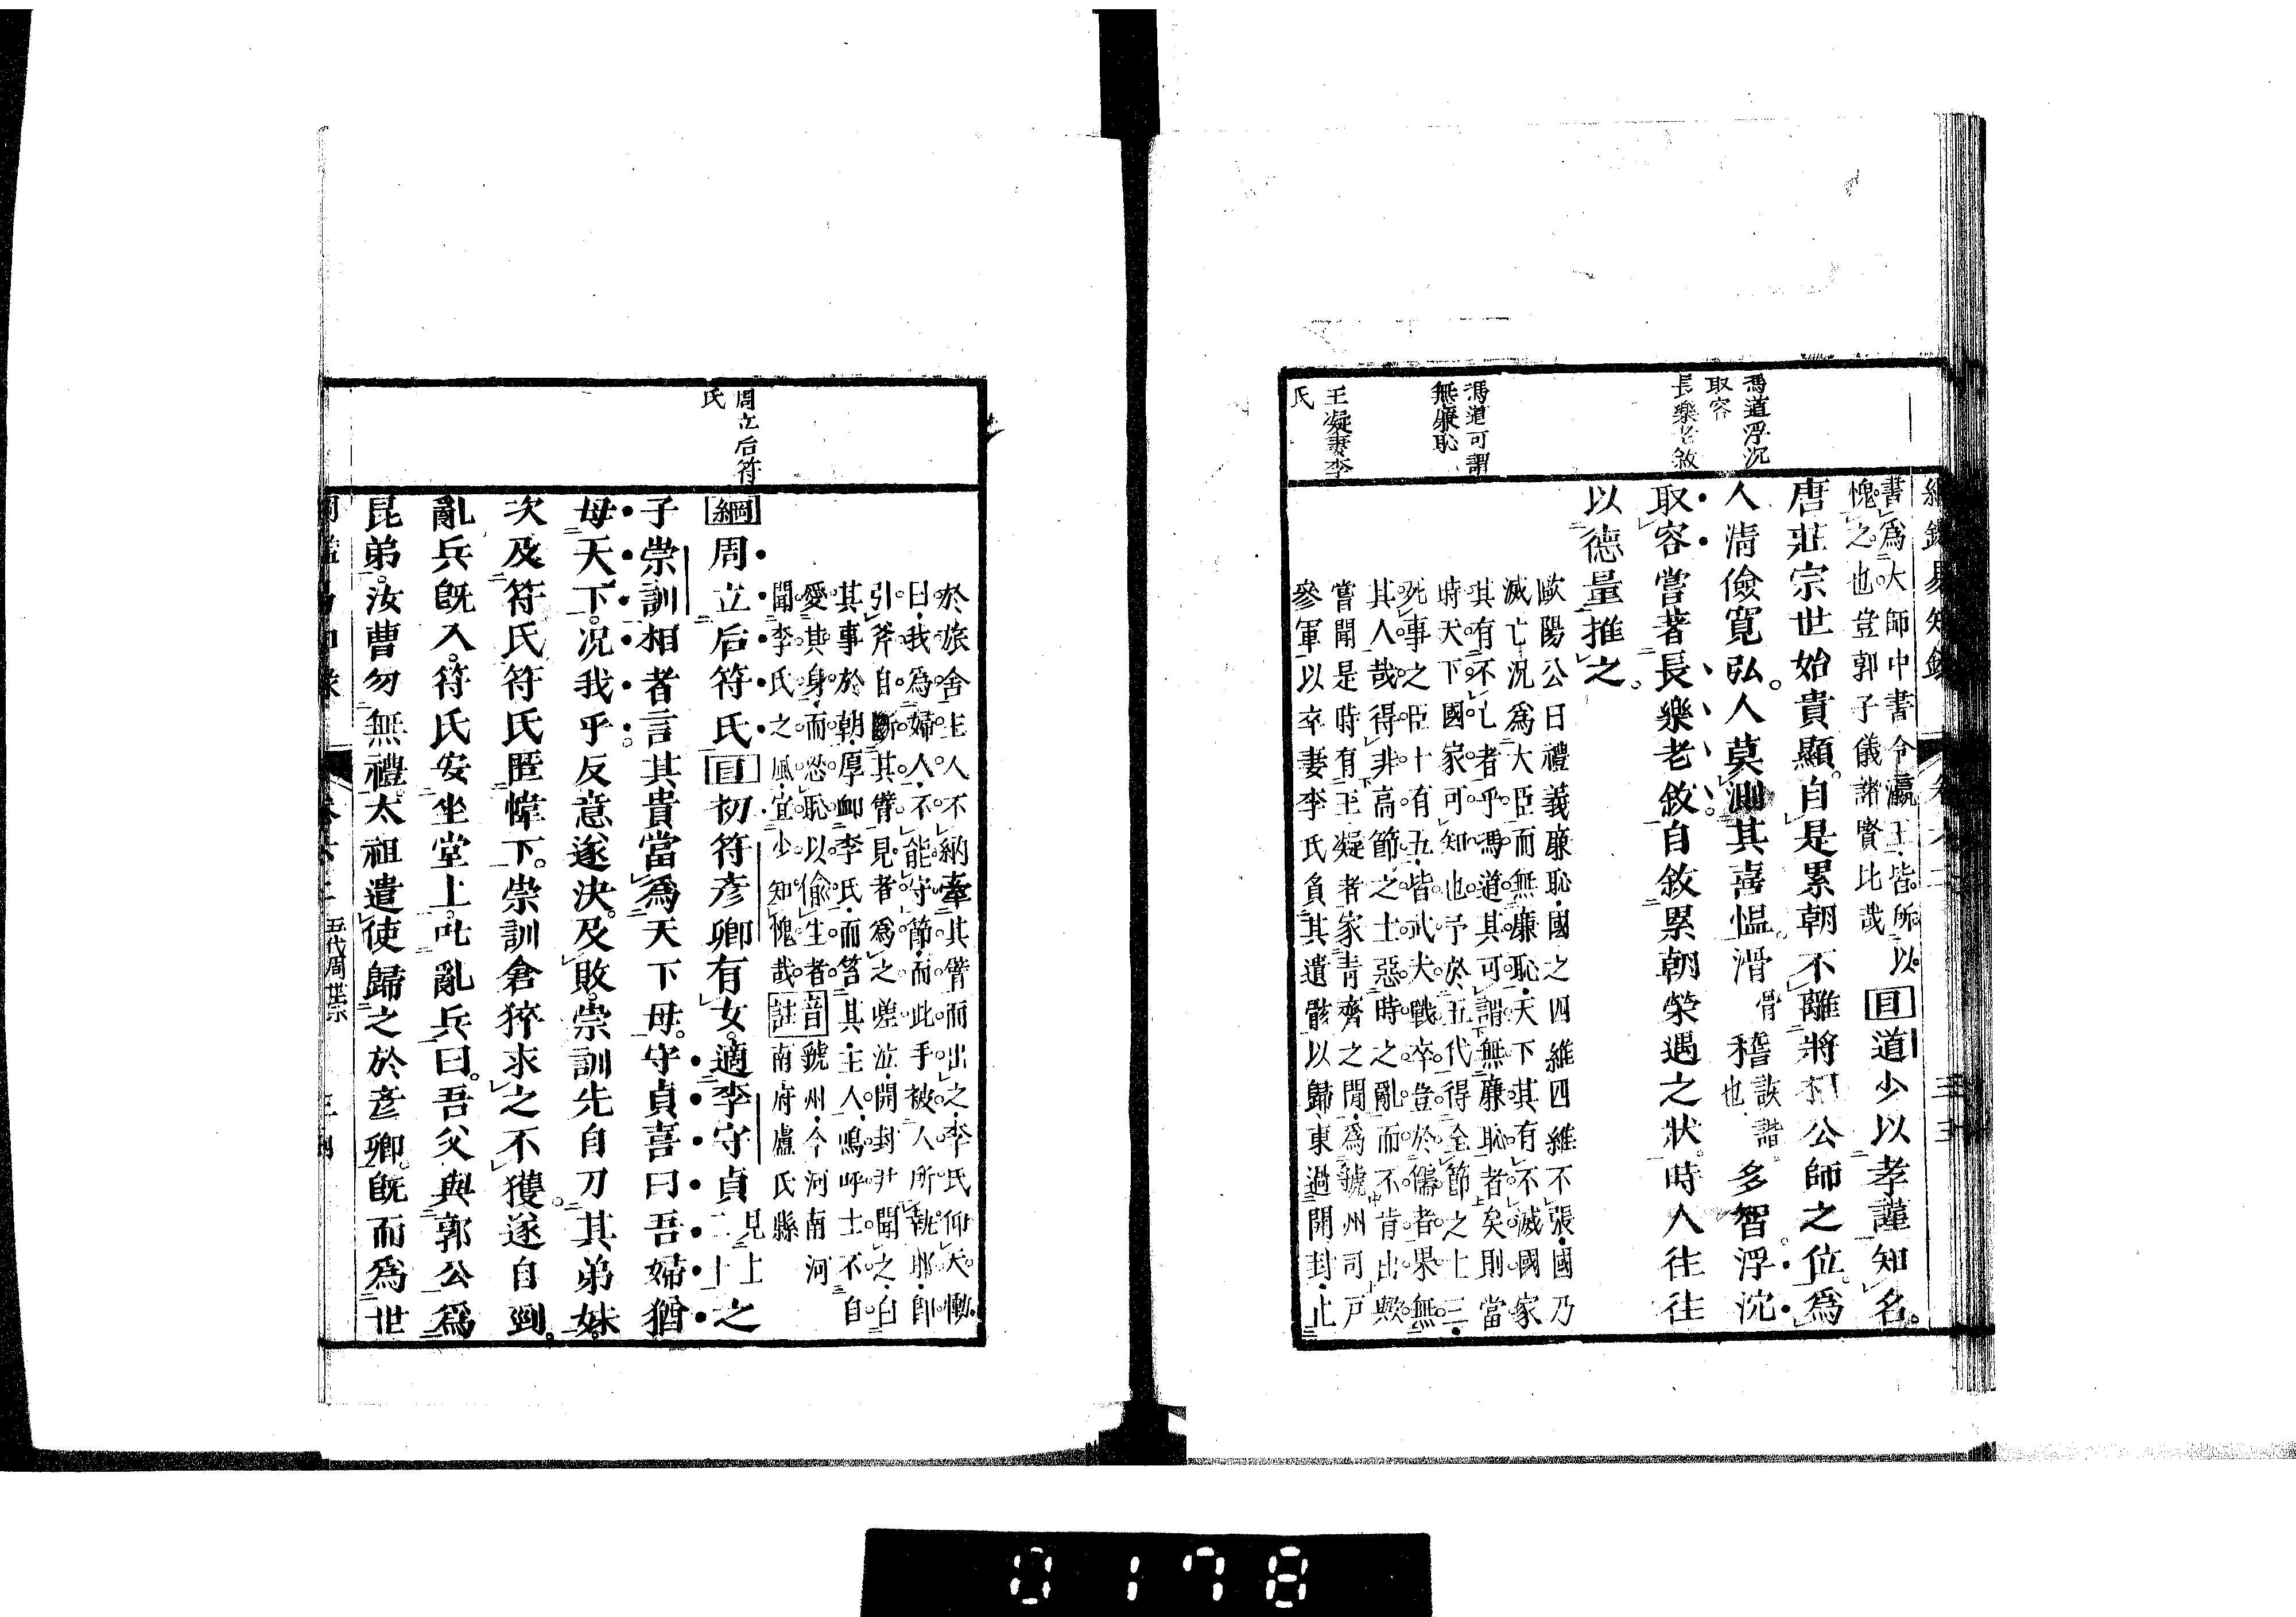 馮道浮沉
取容
長樂老敘
馮道可謂
無廉恥
王凝妻李
氏
書爲大師中書令瀛王皆所以
愧之也豈郭子儀諸賢比哉
目道少以孝謹知名
唐莊宗世始貴顯自是累朝不離將相公師之位爲
人清儉寬弘人莫測其喜慍滑骨稽詼諧也多智浮沈
取容嘗著長樂老敘自敘累朝榮遇之狀時人往往
以德量推之
歐陽公曰禮義廉恥國之四維四維不張國乃
滅亡況爲大臣而無廉恥天下其有不滅國家
其有不亡者乎馮道其可謂無廉恥者矣則當
時天下國家可知也予於五代得全節之士三
死事之臣十有五皆武夫戰卒豈於儒者果無
其人哉得非高節之士惡時之亂而不肯出歟
嘗聞是時有王凝者家青齊之間爲虢州司戸
參軍以卒妻李氏負其遺骸以歸東過開封止
周立后符
氏
於旅舍主人不納牽其臂而出之李氏仰天慟
曰我爲婦人不能守節而此手被人所執耶卽
引斧自斷其臂見者爲之嗟泣開封尹聞之白
其事於朝厚卹李氏而笞其主人嗚呼士不自
愛其身而忍恥以偸生者
聞李氏之風宜少知愧哉
音虢州今河南河
註南府盧氏縣
綱周立后符氏目初符彦卿有女適李守貞見上二十之
子崇訓相者言其貴當爲天下母守貞喜曰吾婦猶
母天下況我乎反意遂決及敗崇訓先自刀其弟妹
次及符氏符氏匿幃下崇訓倉猝求之不獲遂自剄
亂兵既入符氏安坐堂上叱亂兵曰吾父與郭公爲
昆弟汝曹勿無禮太祖遣使歸之於彦卿既而爲世
五代周世宗
0178